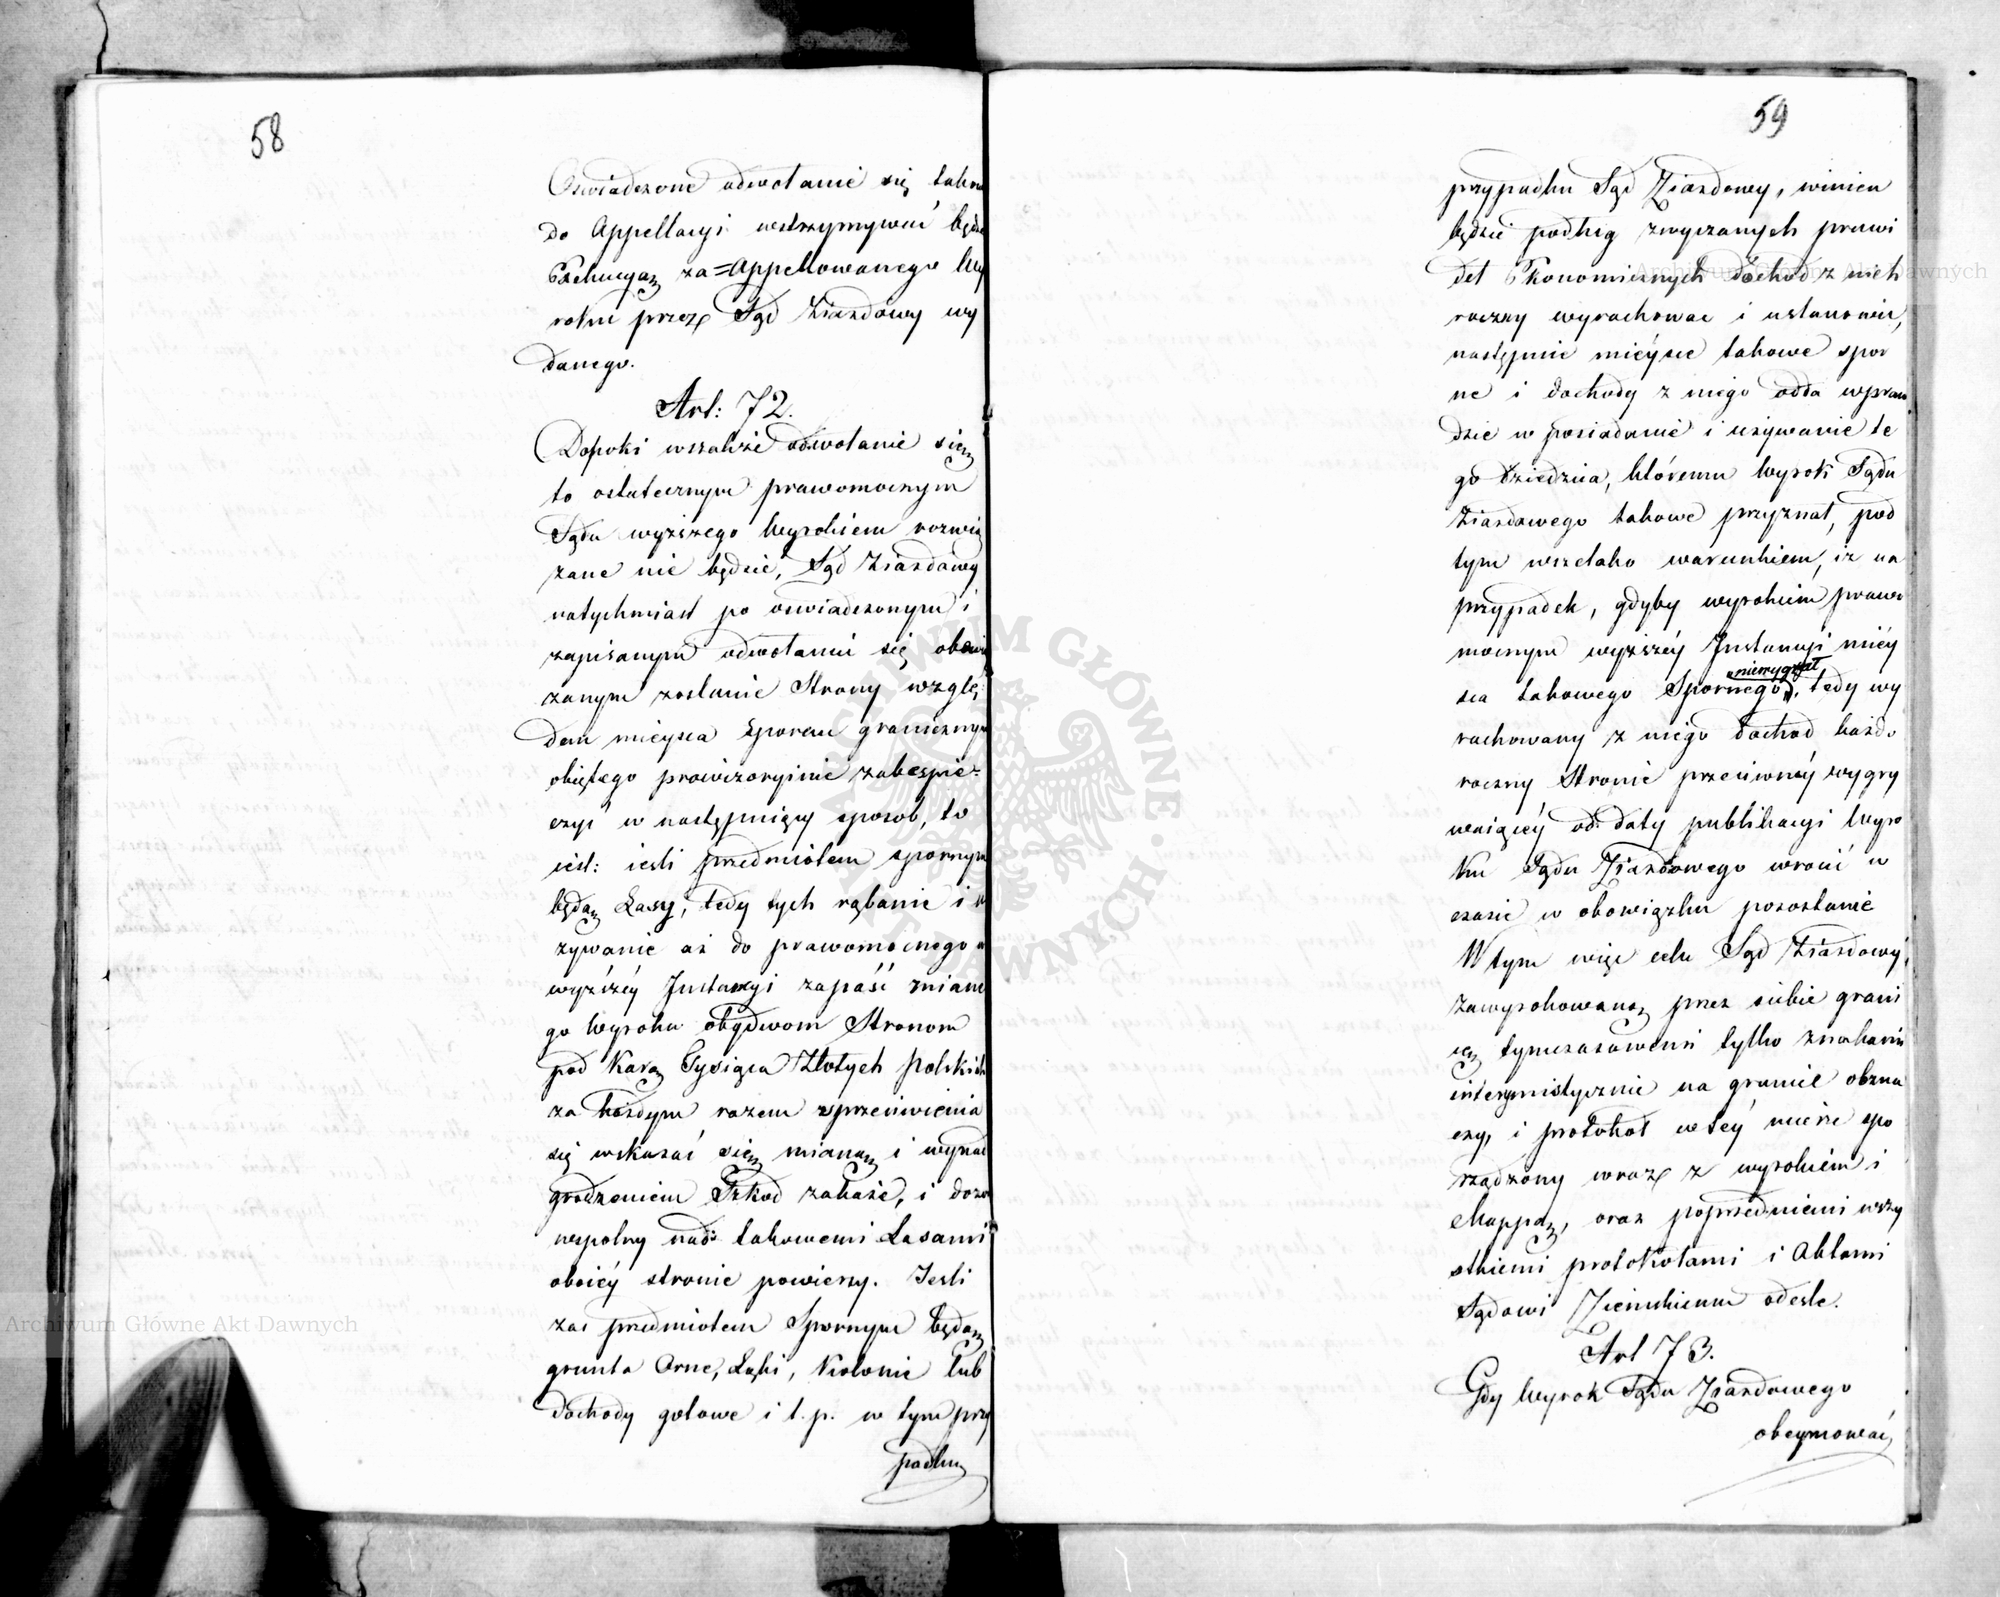 58
Oswiadczone odwołanie się takow
do Appellacyi wstrzymywać będz
Exekucyą za=Appellowanego Wy
roku przez Sąd Ziazdowy wy
danego.
Art: 72.
Dopoki wszakże odwołanie się
to ostatecznym prawomocnym
Sądu wyższego Wyrokiem rozwią
zane nie będzie, Sąd Ziazdowy
natychmiast po oswiadczonym i
zapisanym odwołaniu się obowią
zanym zostanie Strony wzglę,
dem mieysca sporem granicznym
obiętego prowizoryinie zabespie=
czyć w następuiący sposob, to
iest: iesli przedmiotem spornym
będą Lasy, tedy tych rąbanie i u
zywanie aż do prawomocnego w
wyższéy Instancyi zapaść maiące
go Wyroku obydwom Stronom
pod Karą Tysiąca Złotych polskich
za każdym razem sprzeciwienia
się wskazać się maiącą i wyna
grodzeniem Szkod zakaże, i dozo
wspolny nad takowemi Lasami
oboiéy stronie powierzy. Iesli
zas przedmiotem Spornym będą
grunta Orne, Łąki, Kolonie lub
dochody gotowe i t. p. w tym przy
padku
59
przypadku Sąd Ziazdowy, winien
będzie podług zwyczaynych prawi
deł Ekonomicznych dochod z nich
roczny wyrachowac i ustanowic,
następnie mieysce takowe spor
ne i dochody z niego odda wpraw
dzie w posiadanie i uzywanie te
go dziedzica, któremu Wyrok Sądu
Ziazdowego takowe przyznał, pod
tym wszelako warunkiem, iz na
przypadek, gdyby wyrokiem prawo
mocnym wyższéy Instancyi miey
sca takowego Spornego niewygrał, tedy wy
rachowany z niego dochod każdo
roczny Stronie przeciwnéy wygry
waiącéy od daty publikacyi Wyro
ku Sądu Ziazdowego wrocić w
czasie w obowiązku pozostanie
W tym więc celu Sąd Ziazdowy,
zawyrokowaną przez siebie grani
cę tymczasowemi tylko znakami
interymistycznie na gruncie obzna
czy, i protokoł w téy mierze spo
rządzony wraz z wyrokiem i
Mappą, oraz poprzedniemi wszy
stkiemi protokołami i Aktami
Sądowi Ziemskiemu odesle.
Art 73.
Gdy Wyrok Sądu Ziazdowego
obeymować
Archiwum Główne Akt Dawnych
Archiwum Główne Akt Dawnych
ARCHIWUM GŁÓWNE AKT DAWNYCH